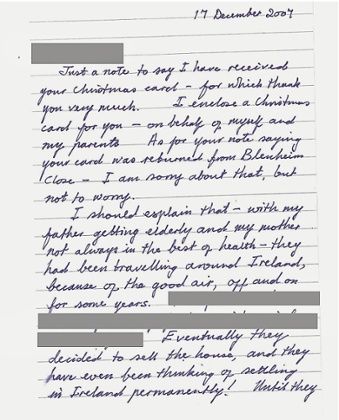 17 December 2007
Just a note to say I have received
your Christmas card – for which thank
you very much. I enclose a Christmas
card for you – on behalf of myself and
my parents As for your note saying
your card was returned from Blenheim
Close – I am sorry about that, but
not to worry.
I should explain that – with my
father getting elderly and my mother
not always in the best of health – they
had been travelling around Ireland,
because of the good air, off and on
for some years.
Eventually they
decided to sell the house, and they
have even been thinking of settling
in Ireland permanently! Until they